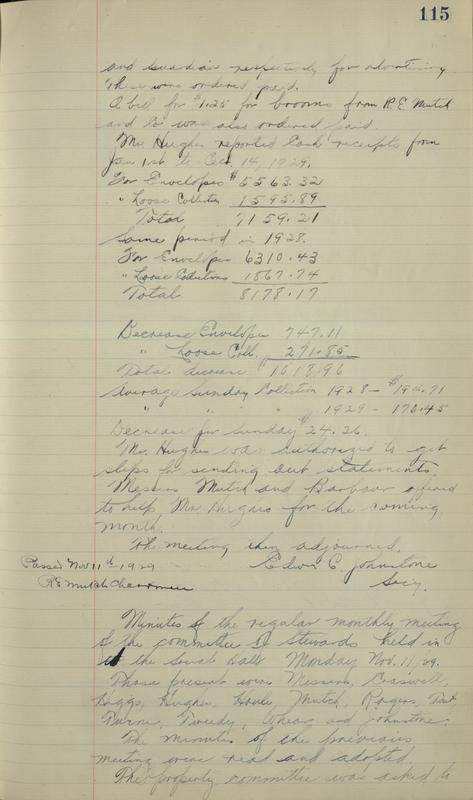 115
and Guardian respectively for advertising
these were ordered paid.
A bill for $1.25 for brooms from R.E. Mutch
and Co was also ordered paid.
Mr. Hughes reported Cash receipts from
Jan 1st to Oct. 14, 1929.
For Envelopes $5563.32
" Loose Collection 1595.89
Total 7159.21
Same period in 1928.
For Envelopes 6310.43
" Loose Collections 1867.74
Total 8178.17
Decrease Envelopes 747.11
" Loose Coll. 271.85
Total decrease $1018.96
Average Sunday Collection 1928 - $194.71
" " " 1929 - 170.45
Decrease per Sunday $24.26
Mr. Hughes was authorized to get
slips for sending out statements
Messrs Mutch and Barbour offered
to help Mr. Hughes for the coming
month.
The meeting then adjourned.
Passed Nov 11th 1929 Edwin C Johnstone
RE Mutch Chairman Secy.
Minutes of the regular monthly meeting
of the committee of Stewards held in
the Social Hall Monday Nov. 11, 29.
Those present were Messrs, Carswell,
Hughes, Mutch, Rogers,
Tweedy, and Johnstone.
The minutes of the previous
meeting were read and adopted
The property committee was asked to